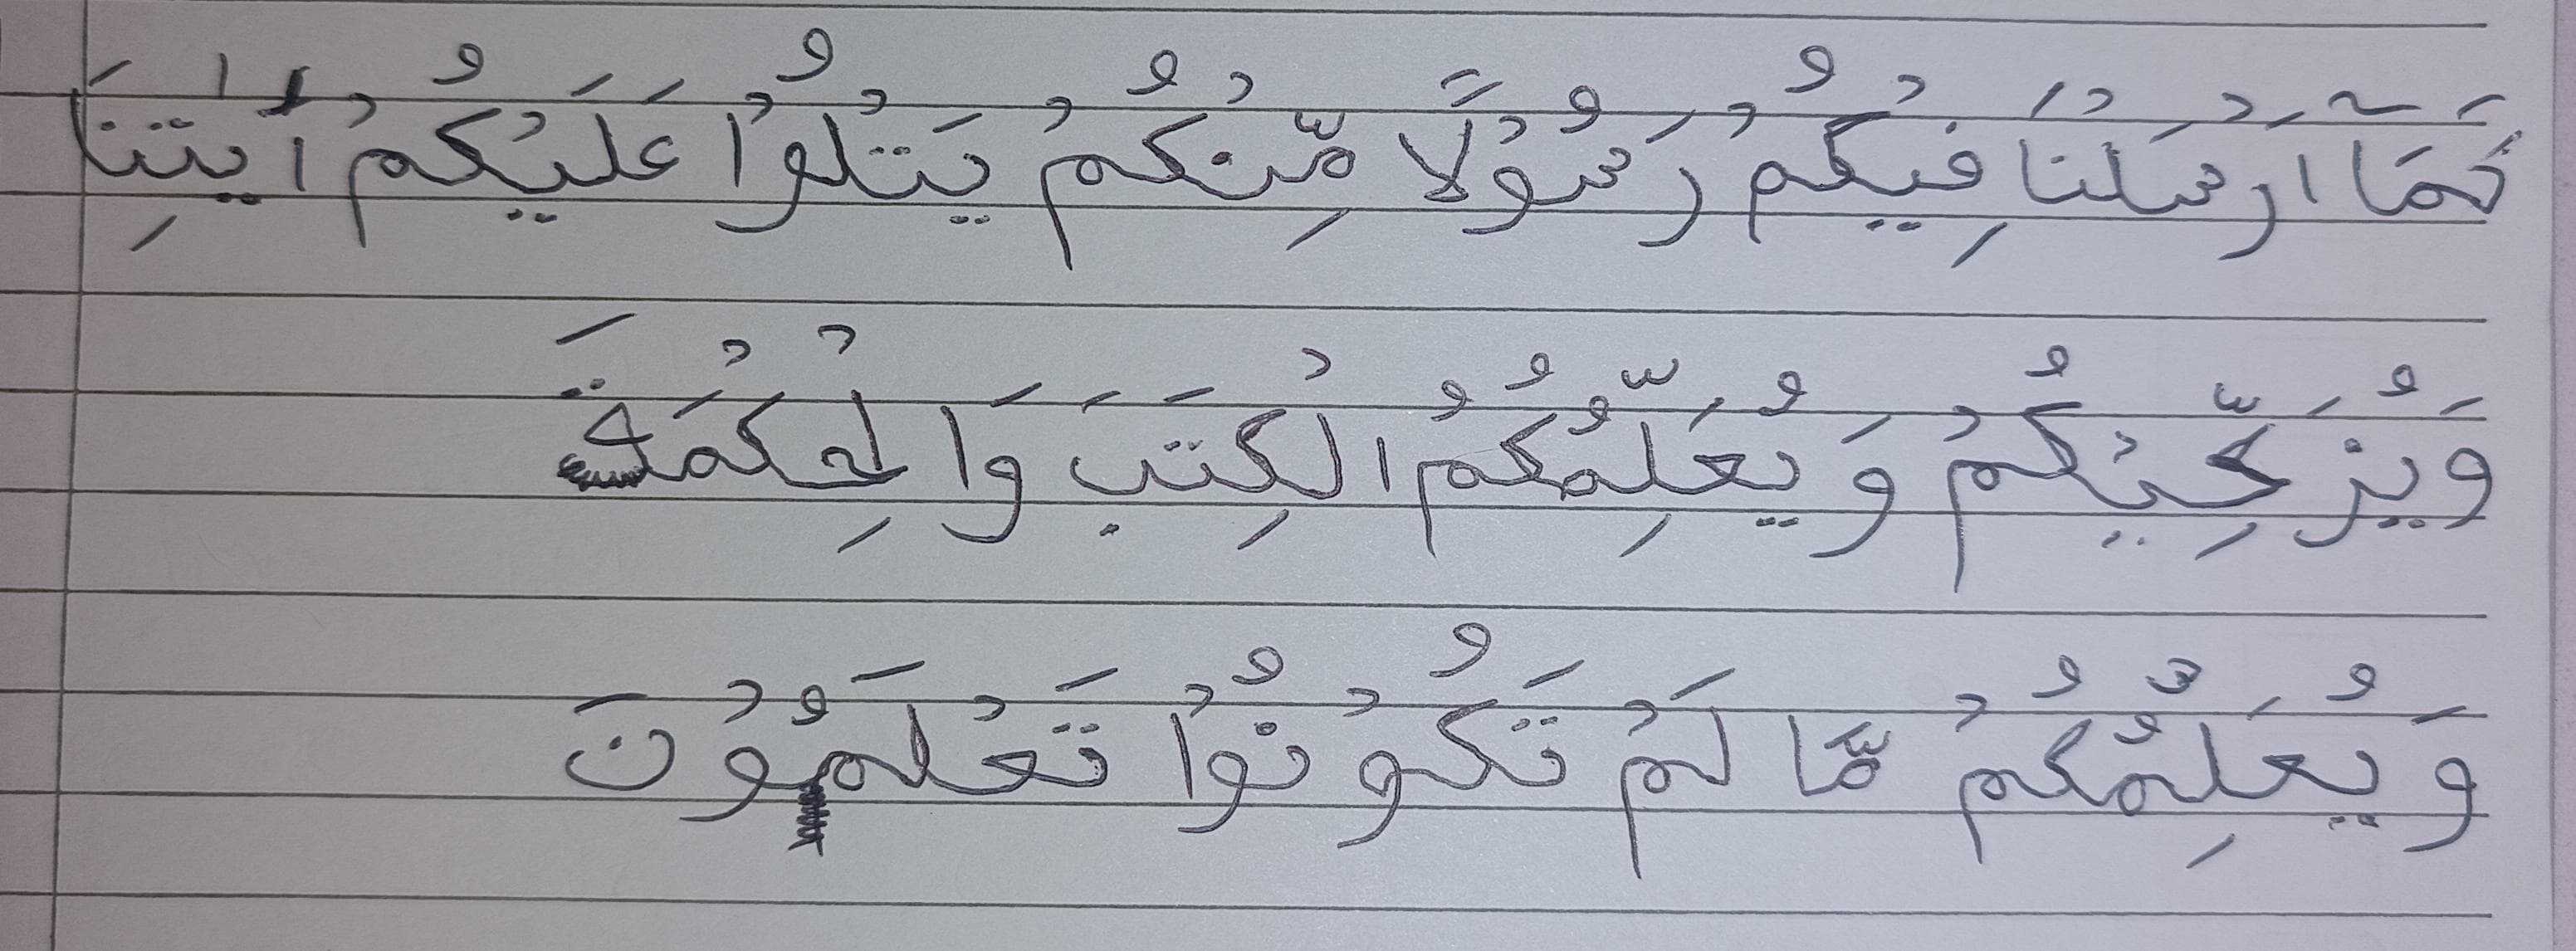 كَمَآ اَرْسَلْنَا فِيْكُمْ رَسُوْلًا مِّنْكُمْ يَتْلُوْا عَلَيْكُمْ اٰيٰتِنَا
وَيُزَكِّيْكُمْ وَيُعَلِّمُكُمُ الْكِتٰبَ وَا لْحِكْمَةَ
وَيُعَلِّمُكُمْ مَّا لَمْ تَكُوْنُوْا تَعْلَمُوْنَ